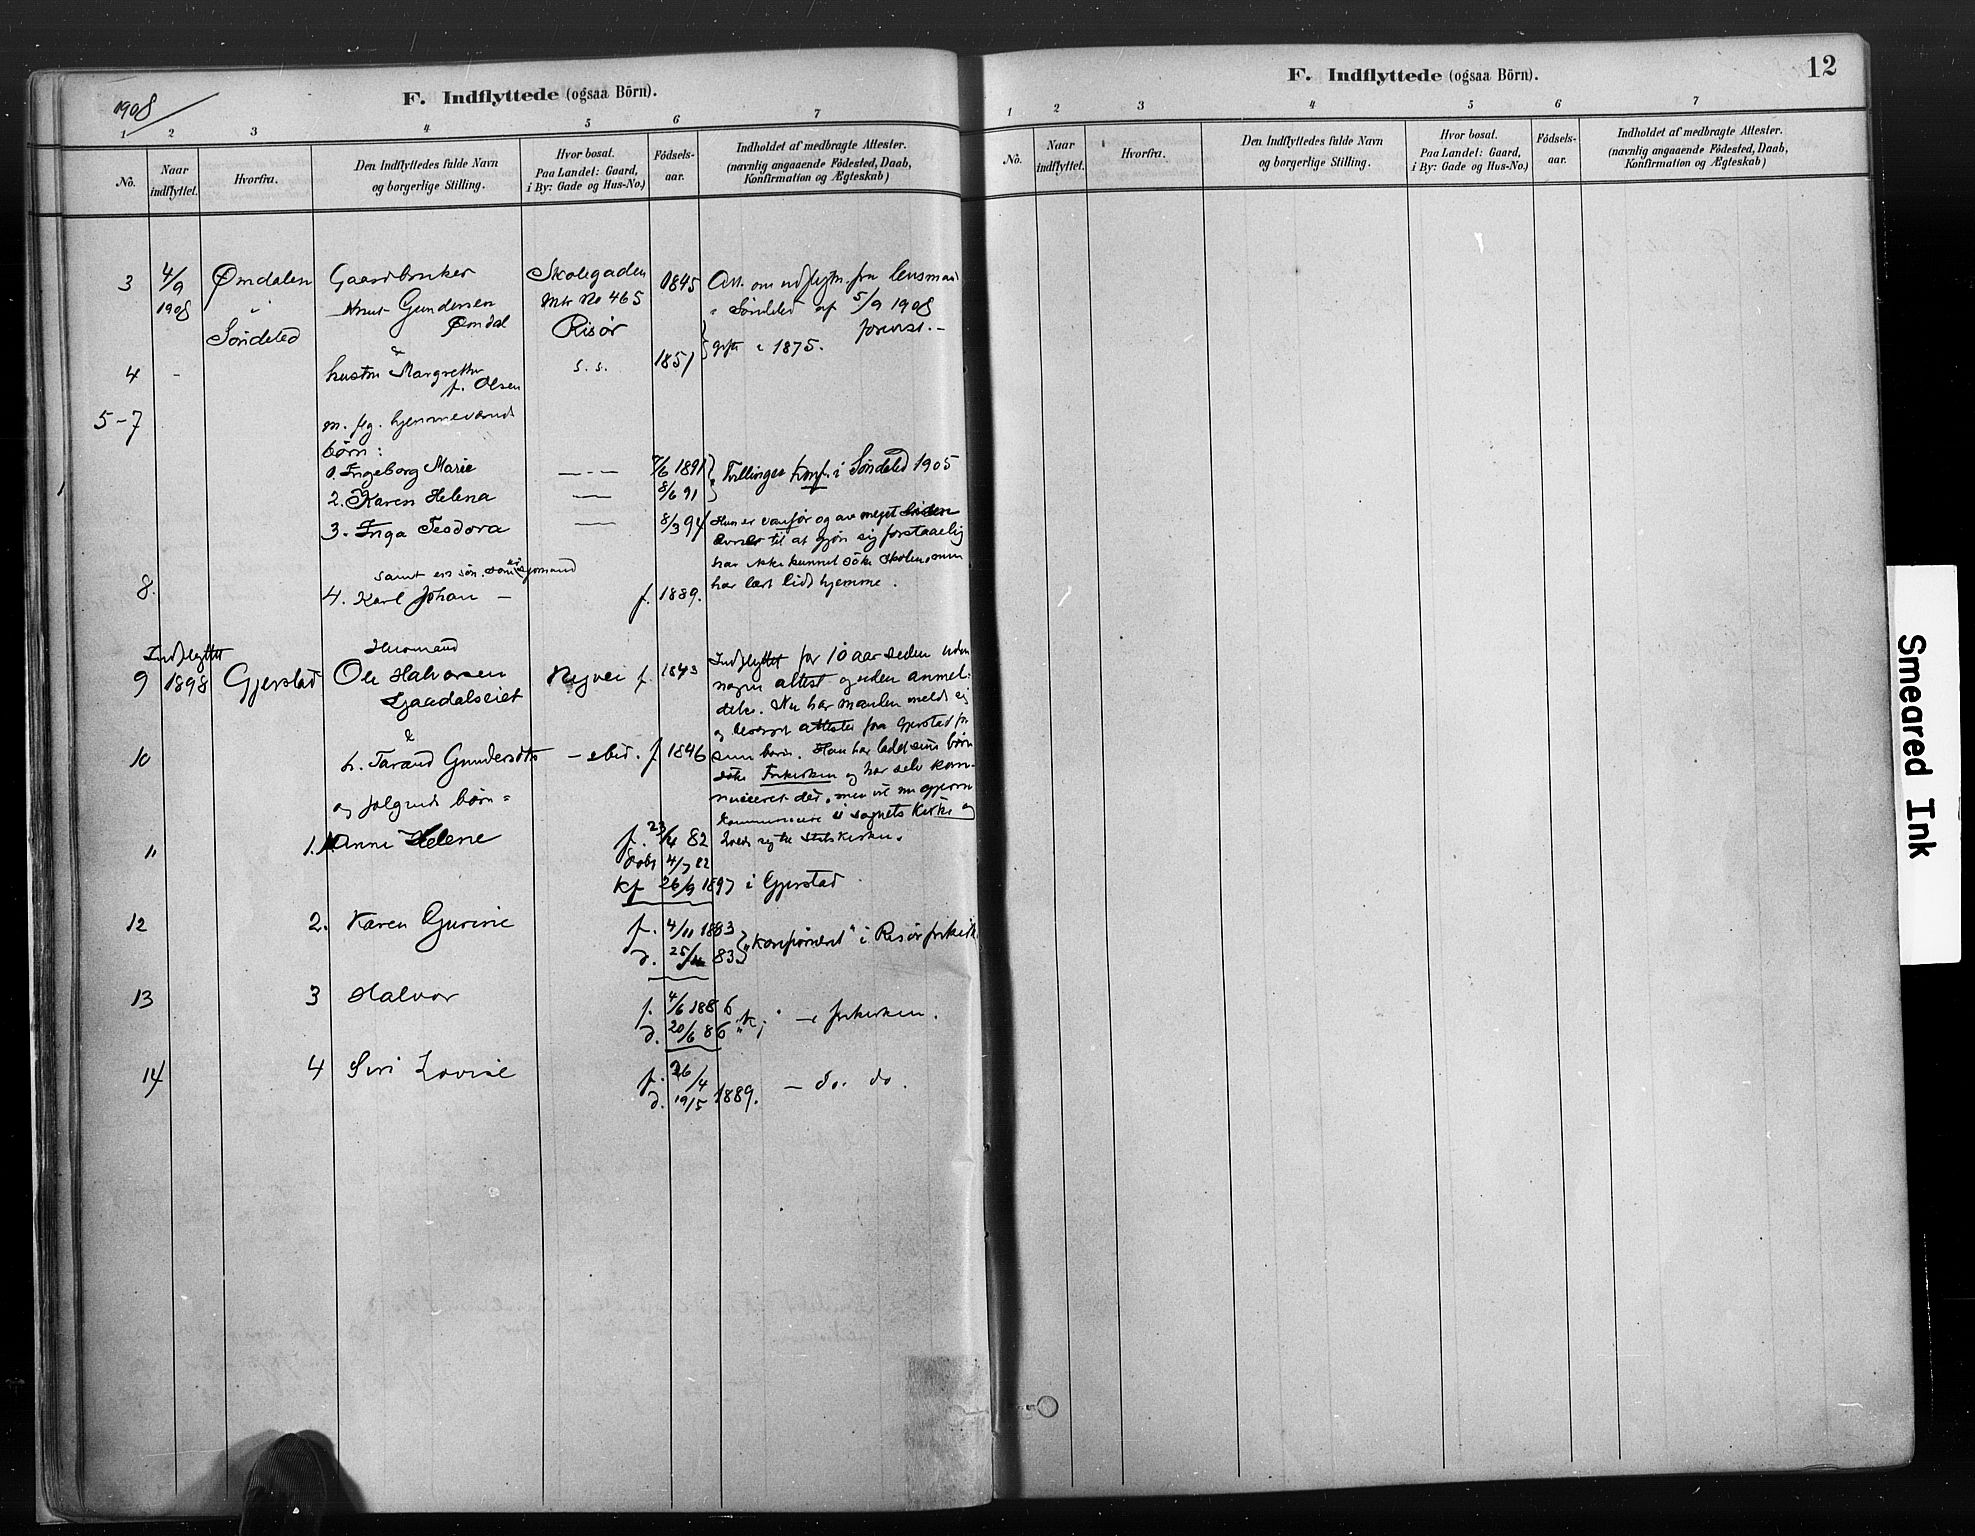 1908
F. Indflyttede (ogsaa Börn).
1 2 3 4 5 6 7
No.
Naar indflyttet.
Hvorfra.
Den Indflyttedes fulde Navn og borgerlige Stilling.
Hvor bosat. Paa Landet: Gaard, i By: Gade og Hus-No.)
Födsels-aar.
Indholdet af medbragte Attester. (navnlig angaaende Födested, Daab, Konfirmation og Ægteskab)
3 4/9 1908 Ømdalen i Søndeled
Gaardbruker
Knut Gundersen
Ømdal
Skolegaden
Mtr No 465
Risør
1845
Att. om udflytn. fra lensmand
i Søndeled af 5/9 1908
forevist. -
gift i 1875.
4 - &
hustru Margrethe
f. Olsen
s. s. 1851
5-7
m. flg. hjemmeværende
børn:
1. Ingeborg Marie 7/6 1891
2. Karen Helena 8/6 91
Tvillinger konf. i Søndeled 1905
3. Inga Teodora 8/3 94
Hun er vanfør og av meget liden
evne til at gjøre sig forstaaelig
har ikke kunnet søke skolen men
har lært lidt hjemme.
samt en søn som er sjømand
8. 4. Karl Johan - f. 1889.
Indflyttet
9 1898 Gjerstad
Husmand
Ole Halvorsen
Lgaadalseiet
Nyvei f. 1843
Indflyttet for 10 aar siden uden
nogen attest og uden anmel-
delse. Nu har manden meldt sig
og besørget attester fra Gjerstad for
sine børn. Han har ladet sine børn
søke Frikirken og har selv kom-
municeret der, men vil nu gjerne
kommunicere i sognets kirke og
holde sig til Statskirken.
&
10 h. Taraud Gundersdtr - ibid. f 1846
og følgende børn =
11 1. Anne Helene
f. 23/4 82
døbt 4/7 82
kf 26/9 1897 i Gjerstad
12 2. Karen Gurine
f. 4/11 1883
d. 25/11 83
"konfirmeret" i Risør frikirk
13 3 Halvor
f. 4/6 1886
d. 20/6 86
"k" - i frikirken.
14 4 Siri Lovise
f. 26/4
d. 19/5 1889.
- do. do.
12
F. Indflyttede (ogsaa Börn).
1 2 3 4 5 6 7
No.
Naar indflyttet.
Hvorfra.
Den Indflyttedes fulde Navn og borgerlige Stilling.
Hvor bosat. Paa Landet: Gaard, i By: Gade og Hus-No.)
Födsels-aar.
Indholdet af medbragte Attester. (navnlig angaaende Födested, Daab, Konfirmation og Ægteskab)
Smeared Ink